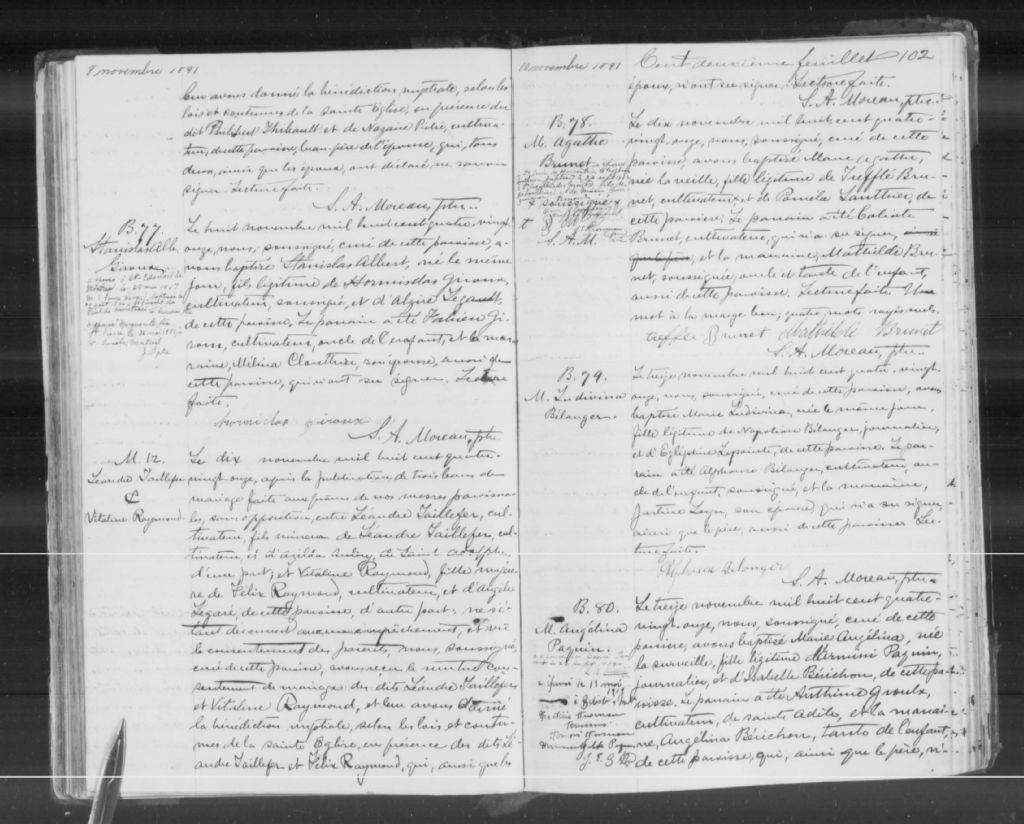 8 novembre 1891
leur avons donné la bénédiction nuptiale, selon les
lois et coutumes de la sainte Eglise, en présence du
dit Philibert Thibault et de Nazaire Piché, cultiva-
teur, de cette paroisse, beau-père de l'épouse, qui, tous
deux, ainsi que les époux, ont déclaré ne savoir
signer. Lecture faite.
S. A. Moreau, ptre.
B. 77.
Stanislas Alb.
Giroux
Le huit novembre mil huit cent quatre vingt
onze, nous, soussigné, curé de cette paroisse, a-
vons baptisé Stanislas Albert, né le même
jour, fils légitime de Hormisdas Giroux,
cultivateur, soussigné, et d'Alzire Legault,
de cette paroisse. Le parrain a été Fabien Gi-
roux, cultivateur, oncle de l'enfant, et la mar-
raine, Mélina Clouthier, son épouse, aussi de
cette paroisse, qui n'ont su signer. Lecture
faite.
hormidas giroux
S. A. Moreau, ptre
M. 12.
Léandre Taillefer
&
Vitaline Raymond.
Le dix novembre mil huit cent quatre-
vingt-onze, après la publication de trois bans de
mariage faite aux prônes de nos messes paroissia-
les, sans opposition, entre Léandre Taillefer, cul-
tivateur, fils mineur de Léandre Taillefer, cul-
tivateur, et d'Azilda de Saint Adolphe,
d'une part; et Vitaline Raymond, fille majeu-
re de Félix Raymond, cultivateur, et d'Angèle
Légaré, de cette paroisse, d'autre part; ne s'é-
tant découvert aucun empêchement, et vu
le consentement des parents, nous, soussigné,
curé de cette paroisse, avons reçu le mutuel con-
sentement de mariage des dits Léandre Taillefer
et Vitaline Raymond, et leur avons donné
la bénédiction nuptiale, selon les lois et coutu-
mes de la sainte Eglise, en présence des dits Lé-
andre Taillefer et Félix Raymond, qui, ainsi que les
10 novembre 1891
Cent deuxième feuillet 102
époux, n'ont su signer. Lecture faite.
S. A. Moreau, ptre.
B. 78.
M. Agathe
Brunet
x soussigné x
S. A. M. Ptre
Le dix novembre mil huit cent quatre-
vingt-onze, nous, soussigné, curé de cette
paroisse, avons baptisé Marie Agathe,
née la veille, fille légitime de Trefflé Bru-
net, cultivateur x et de Paméla Lanthier, de
cette paroisse. Le parrain a été Calixte
Brunet, cultivateur, qui n'a su signer,
et la marraine, Mathilde Bru-
net, soussignée, oncle et tante de l'enfant,
aussi de cette paroisse. Lecture faite. Un
mot à la marge bon; quatre mots rayés nuls.
trefflé Brunet Mathilde Brunet
S. A. Moreau, ptre.
B. 79.
M. Ludivina
Bélanger.
Le treize novembre mil huit cent quatre-vingt-
onze, nous, soussigné, curé de cette paroisse, avons
baptisé Marie Ludivina, née le même jour,
fille légitime de Napoléon Bélanger, journalier,
et d'Eglephine Lapointe, de cette paroisse. Le par-
rain a été Alphonse Bélanger, cultivateur, on-
cle de l'enfant, soussigné, et la marraine,
Justine son épouse, qui n'a su signer,
ainsi que le père, aussi de cette paroisse. Lec-
ture faite.
Alphonse Belanger
S. A. Moreau, ptre
B. 80.
M. Angélina
Paquin.
Le treize novembre mil huit cent quatre-
vingt-onze, nous, soussigné, curé de cette
paroisse, avons baptisé Marie Angélina, née
la surveille, fille légitime de Firmini Paquin,
journalier, et d'Isabelle Bérichon, de cette pa-
roisse. Le parrain a été Anthime Giroux,
cultivateur, de sainte Adèle, et la marrai-
ne, Angélina Bérichon, tante de l'enfant,
de cette paroisse, qui, ainsi que le père, n'-